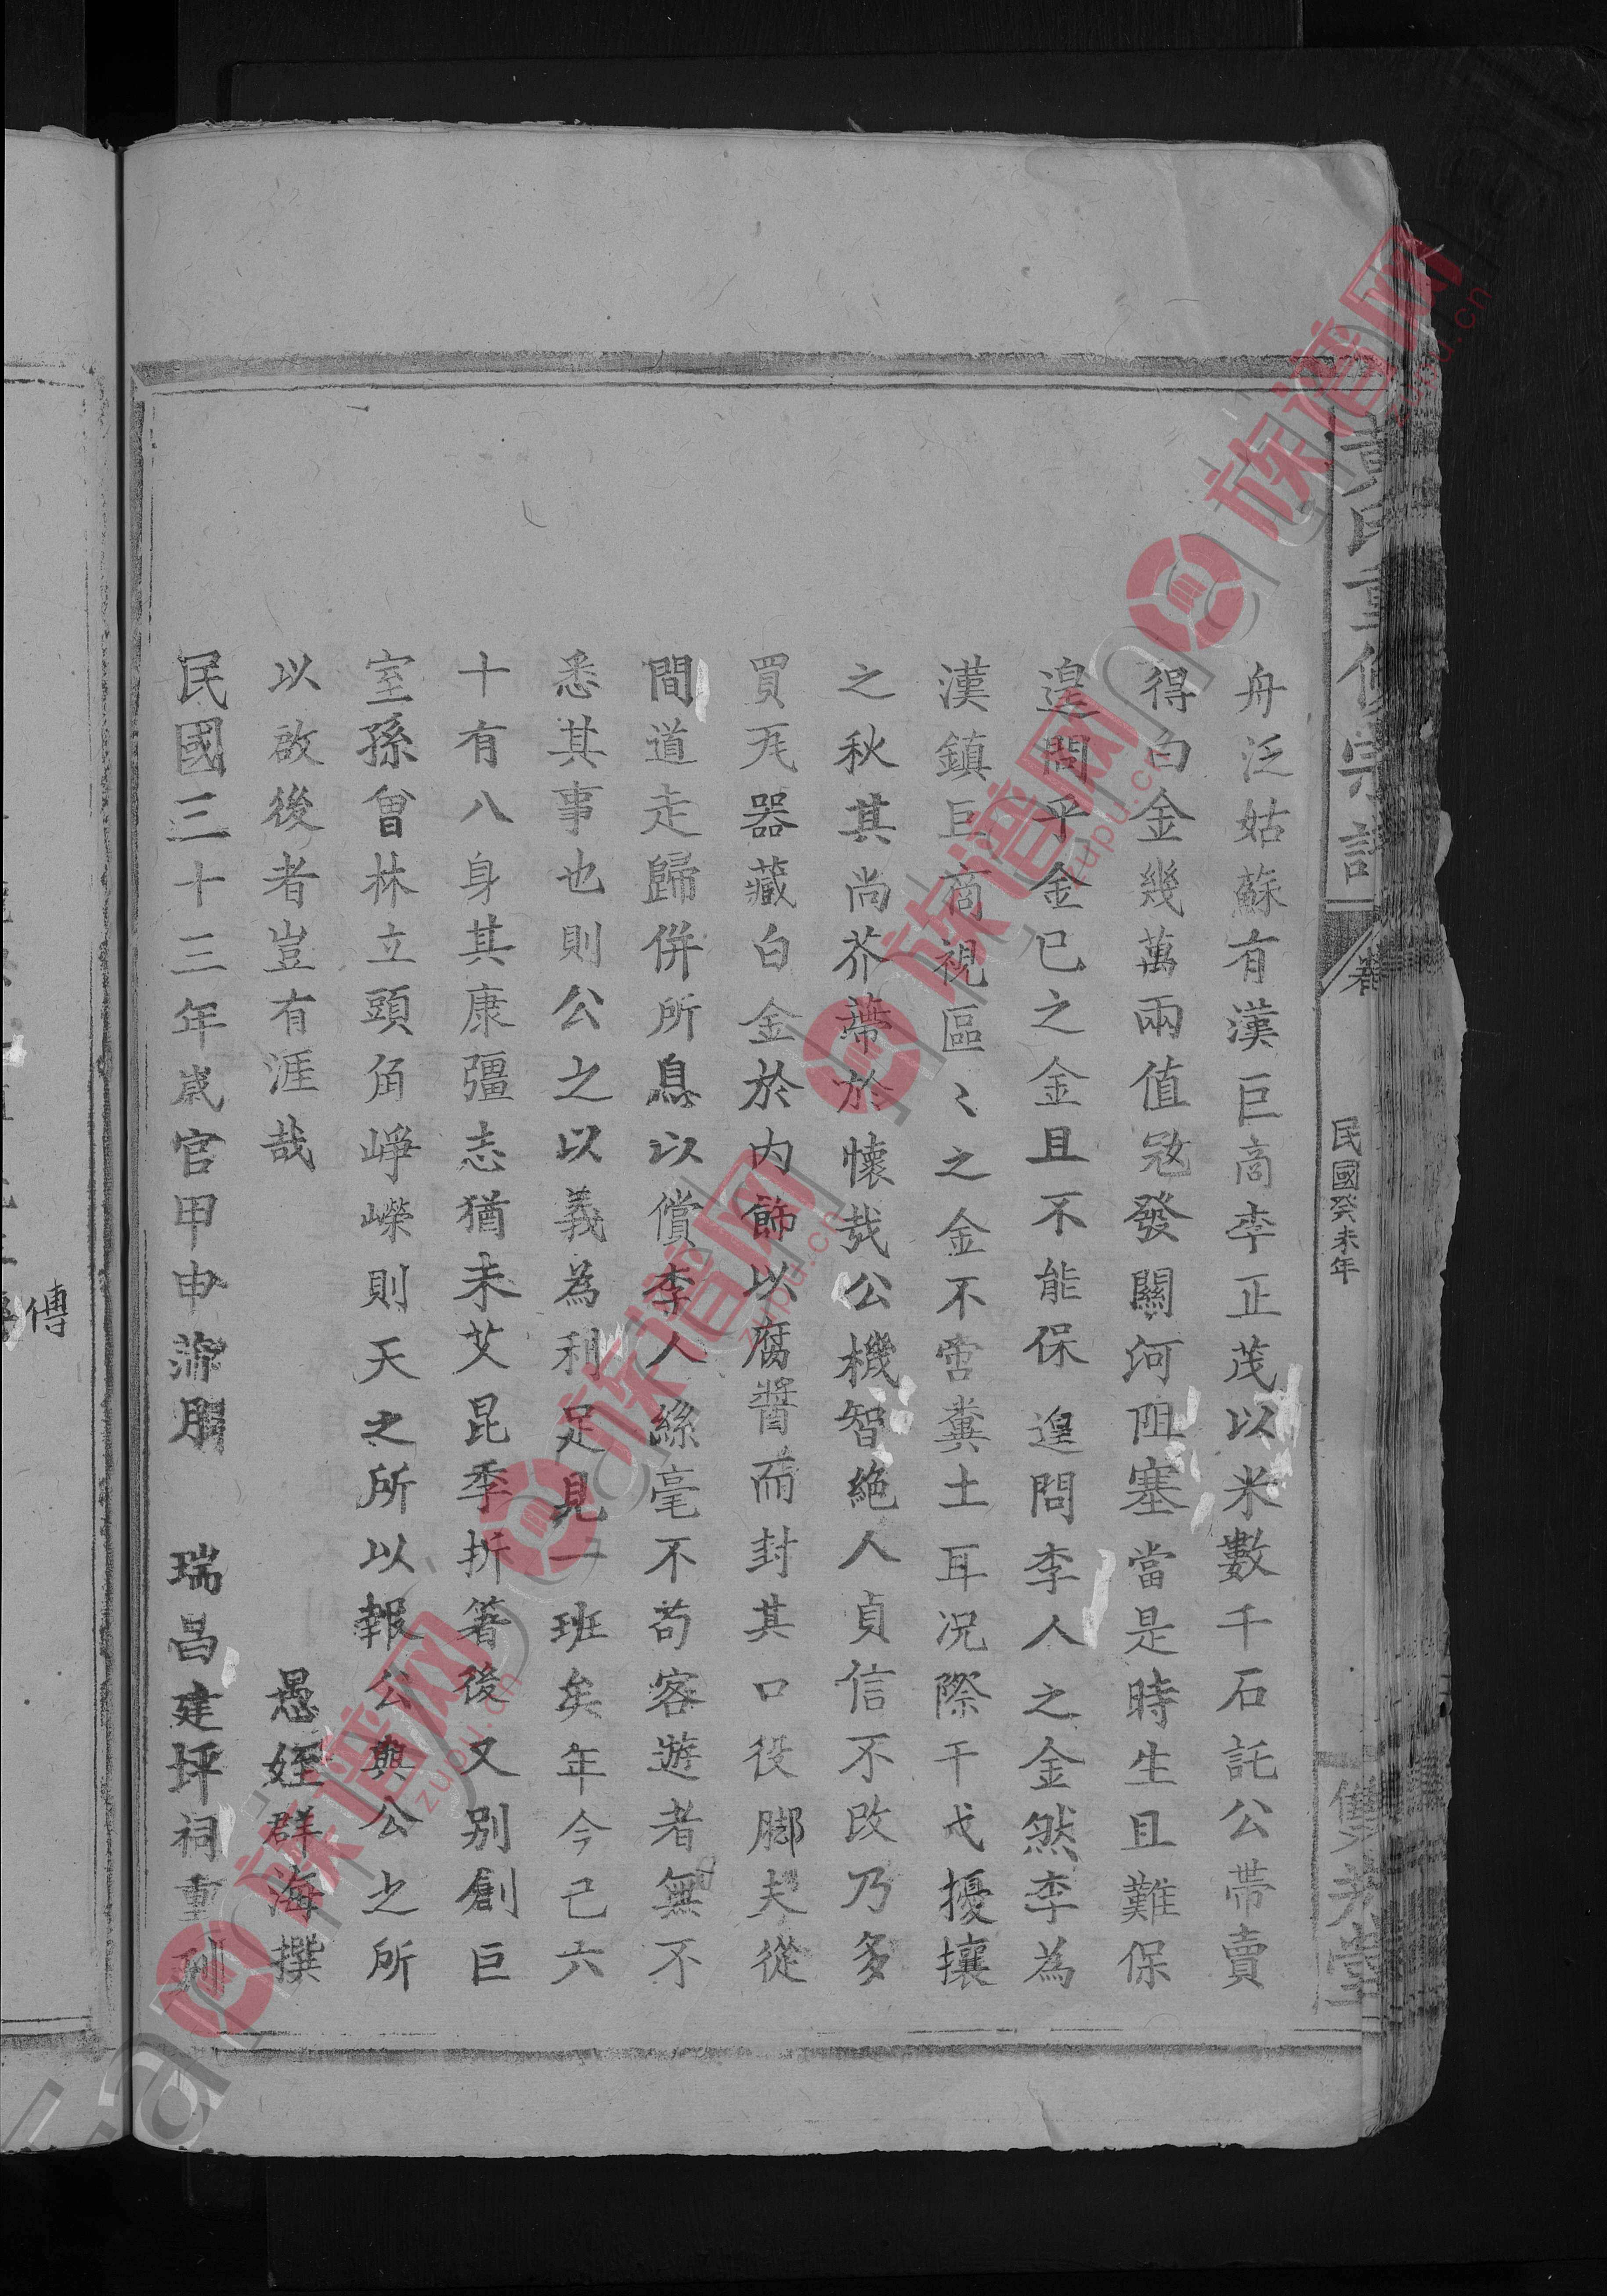 黃氏重修宗譜
卷
民國癸未年
雙井堂
舟泛姑蘇有漢巨商李正茂以米數千石託公帶賣
得白金幾萬兩值寇發關河阻塞當是時生且難保
遑問乎金己之金且不能保遑問李人之金然李為
漢鎮巨商視區〻之金不啻糞土耳况際干戈擾攘
之秋其尚芥蒂於懷哉公機智絶人貞信不改乃多
買瓦器藏白金於内飾以腐醬而封其口役脚夫從
間道走歸併所息以償李人絲毫不苟客遊者無不
悉其事也則公之以義為利足見一班矣年今已六
十有八身其康彊志猶未艾昆季折箸後又别創巨
室孫曾林立頭角崢嶸則天之所以報公與公之所
以啟後者豈有涯哉
愚姪群海撰
民國三十三年歲官甲申　瑞昌建坪祠重刊
傳